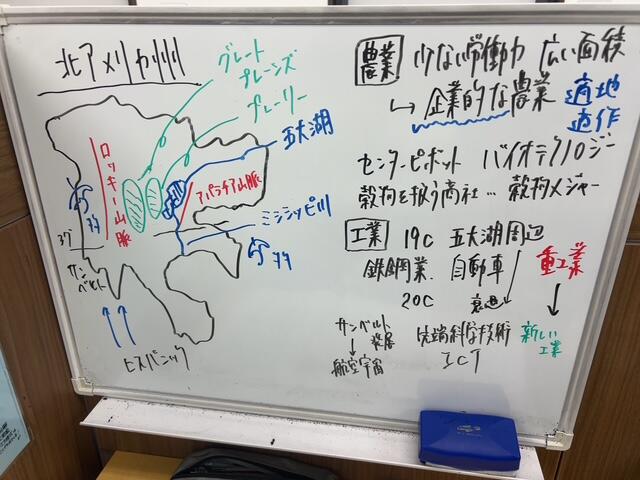 北アメリカ州
グレート
プレーンズ
プレーリー
五大湖
ロッキー山脈
アパラチア山脈
ミシシッピ川
37
サンベルト
ヒスパニック
農業 少ない労働力 広い面積
↳ 企業的な農業 適地
適作
センターピボット バイオテクノロジー
穀物を扱う商社…穀物メジャー
工業 19C 五大湖周辺
鉄鋼業 自動車 重工業
20C 衰退
サンベルト 発展
↓
航空宇宙
先端科学技術
ICT
新しい
工業